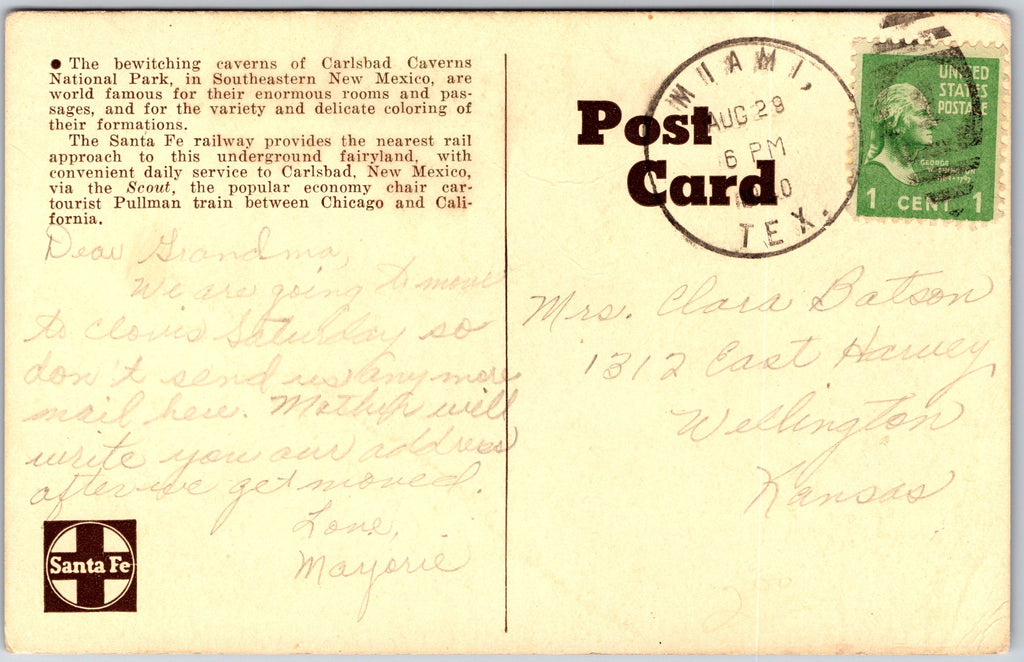 ● The bewitching caverns of Carlsbad Caverns
National Park, in Southeastern New Mexico, are
world famous for their enormous rooms and pas-
sages, and for the variety and delicate coloring of
their formations.
The Santa Fe railway provides the nearest rail
approach to this underground fairyland, with
convenient daily service to Carlsbad, New Mexico,
via the Scout, the popular economy chair car-
tourist Pullman train between Chicago and Cali-
fornia.
Dear Grandma,
We are going to move
to Clovis Saturday so
don't send us any more
mail here. Mother will
write you our address
after we get moved.
Love,
Marjorie
Santa Fe
Post
Card
MIAMI,
AUG 29
6 PM
TEX.
UNITED
STATES
POSTAGE
GEORGE
1 CENT 1
Mrs. Clara Batson
1312 East Harvey
Wellington
Kansas